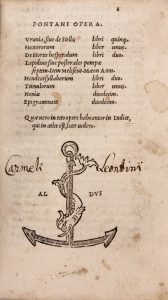 PONTANI OPERA.
Vrania, siue de Stellis libri quinq;
Meteororum liber unus.
De Hortis hesperidum libri duo.
Lepidina siue postorales pompæ
septem. Item Meliseus, Mæon, Acon.
Hendecasyllaborum libri duo.
Tumulorum liber unus.
Neniæ duodecim.
Epigrammata duodecim.
Quæ uero in toto opere habeantur in Indice,
qui in calce est, licet uidere.
Carmeli Leontini
AL DVS